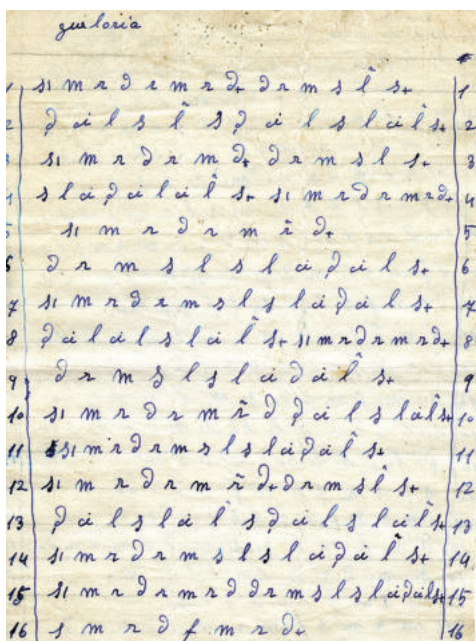 gueloria
1 s1 m r d r m r d+ d r m s l̂ s+ 1
2 d ci l s l̂ s d ci l s l ci l̂ s+ 2
3 s1 m r d r m d+ d r m s l s+ 3
4 s l ci d ci l ci l̂ s+ s1 m r d r m r d+ 4
5 s1 m r d r m r̃ d+ 5
6 d r m s l s l ci d ci l s+ 6
7 s1 m r d r m s l s l ci d ci l s+ 7
8 d ci l ci l s l ci l̂ s+ s1 m r d r m r d+ 8
9 d r m s l s l ci d ci l̂ s+ 9
10 s1 m r d r m r̃ d d ci l s l ci l̂ s+ 10
11 s1 m r d r m s l s l ci d ci l̂ s+ 11
12 s1 m r d r m r̃ d+ d r m s l̂ s+ 12
13 d ci l s l ci l̂ s d ci l s l ci l̂ s+ 13
14 s1 m r d r m s l s l ci d ci l̂ s+ 14
15 s1 m r d r m r d d r m s l s l ci d ci l s+ 15
16 s m r d f m r d+ 16